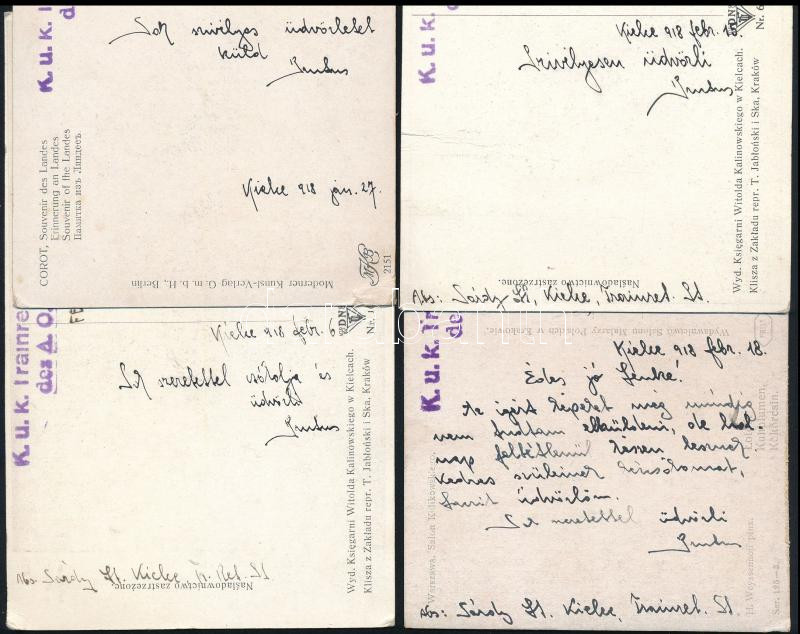 K. u. K. T
d
Sok szivélyes üdvözletet
küld
Kielce 918 jan. 27.
COROT, Souvenir des Landes
Erinnerung an Landes
Souvenir of the Landes
Памятка изъ Ляндесъ
Moderner Kunst-Verlag G. m. b. H., Berlin
2151
K. u. k.
d
Kielce 918 febr. 1
Szivélyesen üdvözli
Nr. 6
Wyd. Księgarni Witolda Kalinowskiego w Kielcach.
Klisza z Zakładu repr. T. Jabłoński i Ska, Kraków
Naśladownictwo zastrzeżone.
Abs: Sárdy St, Kielce, Trainret. St.
K. u. k. Trainre
des A. O.
Kielce 918 febr. 6
Sok szeretettel csókolja és
üdvözli
Nr. 1
Wyd. Księgarni Witolda Kalinowskiego w Kielcach.
Klisza z Zakładu repr. T. Jabłoński i Ska, Kraków
Naśladownictwo zastrzeżone.
Abs: Sárdy St. Kielce Tr. Ret. St
K. u. k. Tr
de
Wydawnictwo Salonu Malarzy Polskich w Krakowie.
Kielce 918 febr. 18.
Édes jó
Az igért képeket még mindig
nem tudtam elküldeni, de hol-
nap feltétlenül
kedves szüleinek kézcsókomat,
üdvözlöm.
Sok szeretettel üdvözli
Warszawa, Salon Kulikowskiego.
H. Weyssenhoff pinx.
Ser. 125-3.
Abs: Sárdy St. Kielce, Trainret. St.